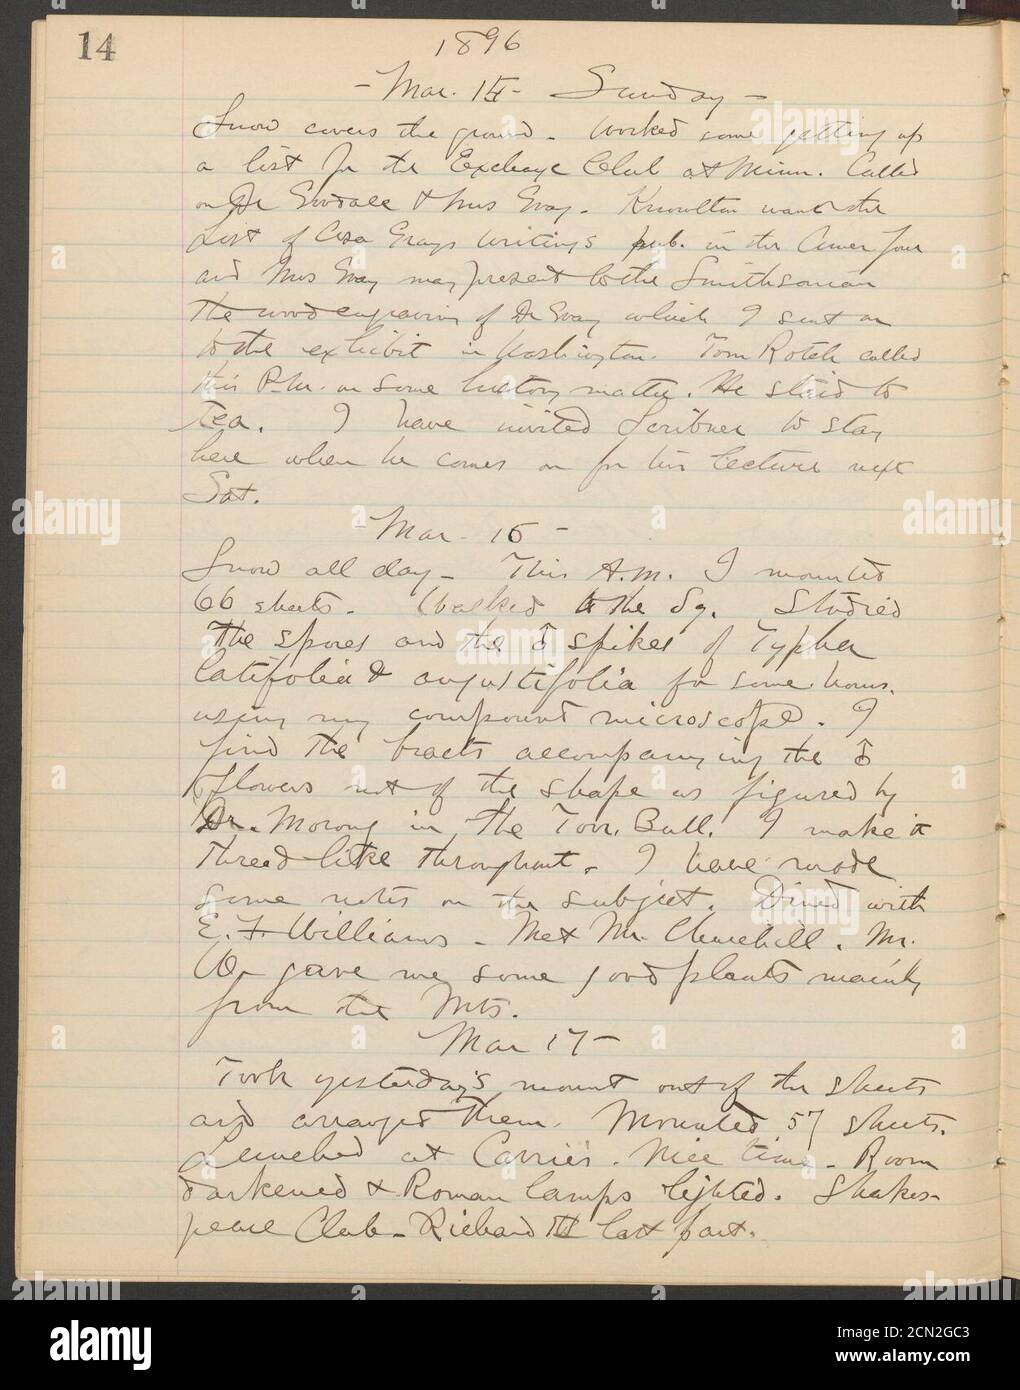 14
1896
- Mar. 15 - Sunday -
Snow covers the ground - Worked some getting up
a list for the Exchange Club at Minn. Called
on Dr Goodale & Mrs Gray. Knowlton wants the
List of Asa Grays writings pub. in the Amer Jour
and Mrs Gray may present to the Smithsonian
the wood engraving of Dr Gray which I sent on
to the exhibit in Washington. Tom Rotch called
this P.M. on some history matter. He staid to
tea. I have invited Scribner to stay
here when he comes on for his lecture next
Sat.
- Mar. 16 -
Snow all day - This A.M. I mounted
66 sheets. Walked to the Sq. Studied
the spores and the ♂ spikes of Typha
latifolia & angustifolia for some hours.
using my compound microscope. I
find the bracts accompanying the ♂
flowers not of the shape as figured by
Dr. Morong in the Torr. Bull. I make it
thread-like throughout. I have made
some notes on the subject. Dined with
E. F. Williams - Met Mr. Churchill. Mr.
W- gave me some good plants mainly
from the Mts.
Mar 17 -
Took yesterday's mount out of the sheets
and arranged them. Mounted 57 sheets.
Lunched at Carrie's. Nice time - Room
darkened & Roman lamps lighted. Shakes-
peare Club - Richard III last part.
alamy
Image ID: 2CN2GC3
www.alamy.com